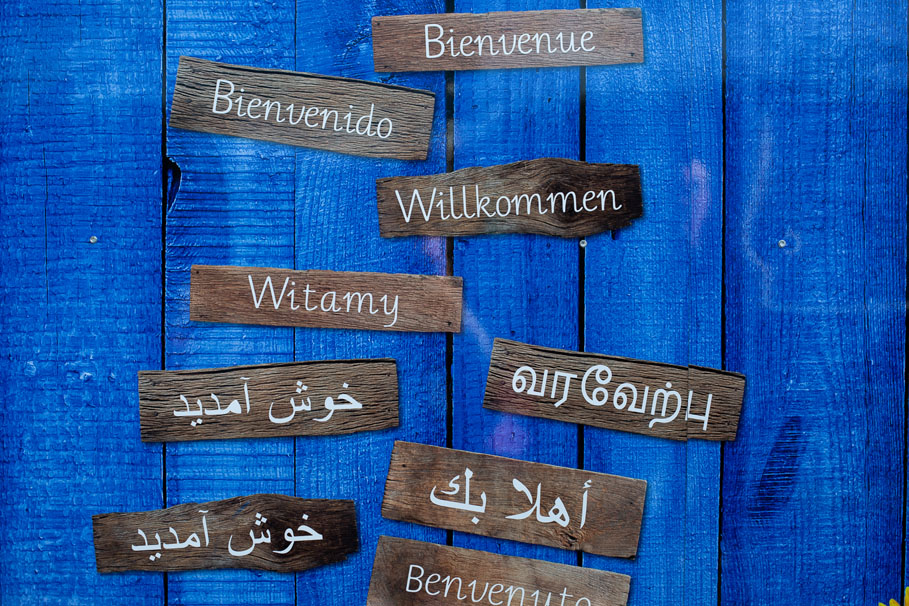 Bienvenue
Bienvenido
Willkommen
Witamy
خوش آمدید
வரவேற்பு
أهلا بك
خوش آمدید
Benvenuto